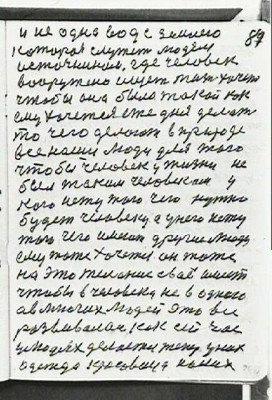 и не одна вода с землею 87
которая служит людям
источником, где человек
вооружено ищет
чтобы она была такой как
ему хочется еже дня делать
то чего делают в природе
все наши люди для того
чтобы человек у жизни не
был таким человеком у
кого нету того чего нужно
будет человеку, а у него нету
того чего имеют другие люди
ему тоже хочется он тоже
на это желание своё имеет
чтобы в человека не в одного
а в многих людей это все
развивалась как сей час
у людях делается между у них
одежда красовица